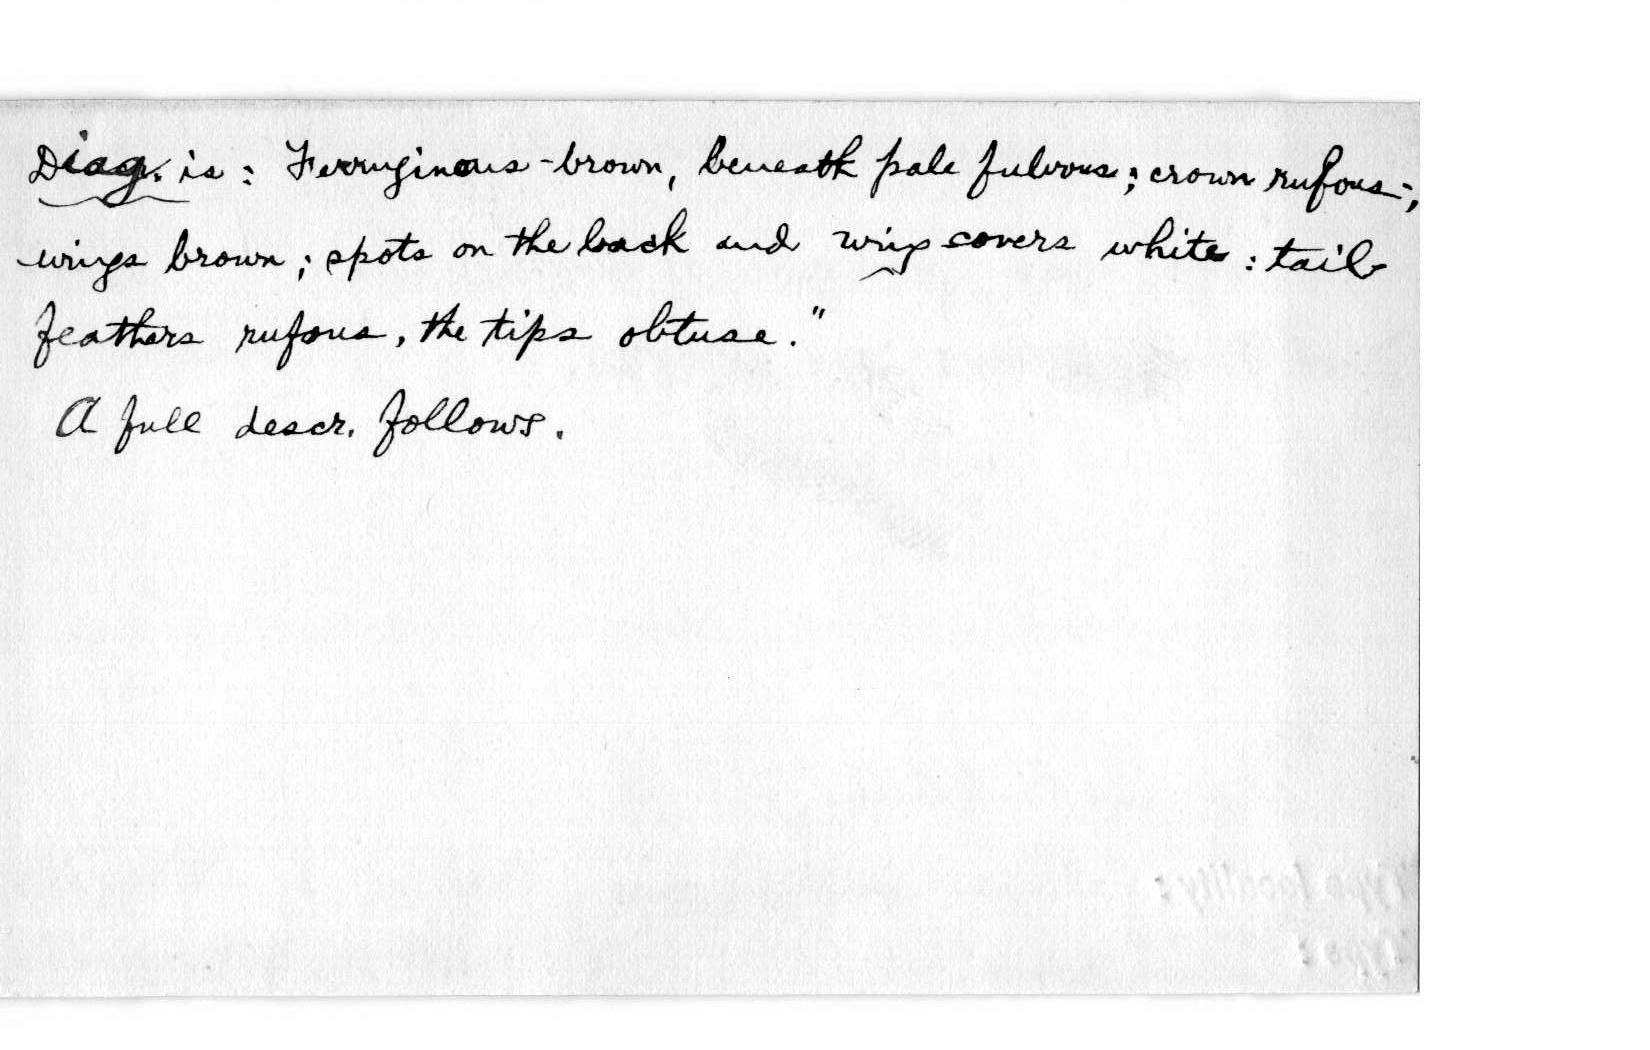 Diag. is: Ferruginous-brown, beneath pale fulvous; crown rufous;
wings brown; spots on the back and wing covers white: tail
feathers rufous, the tips obtuse."
A full descr. follows.
Type locality:
Type: